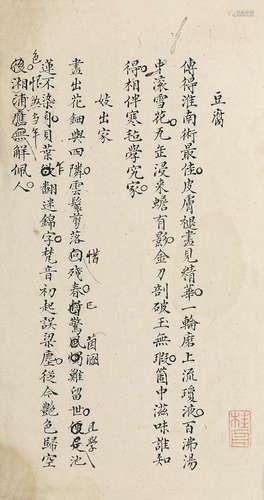 豆腐
傳得淮南術最佳皮膚褪盡見精華一輪磨上流瓊液百沸湯
中滾雪花瓦缶浸來蟾有影金刀剖破玉無瑕箇中滋味誰知
得相伴寒氊學究家
妓出家
盡出花鈿與四隣雲鬢剪落殘春驚風燭難留世便是池
蓮不染身貝葉乍翻迷錦字梵音初起誤梁塵從今艷色歸空
後湘浦應無解佩人